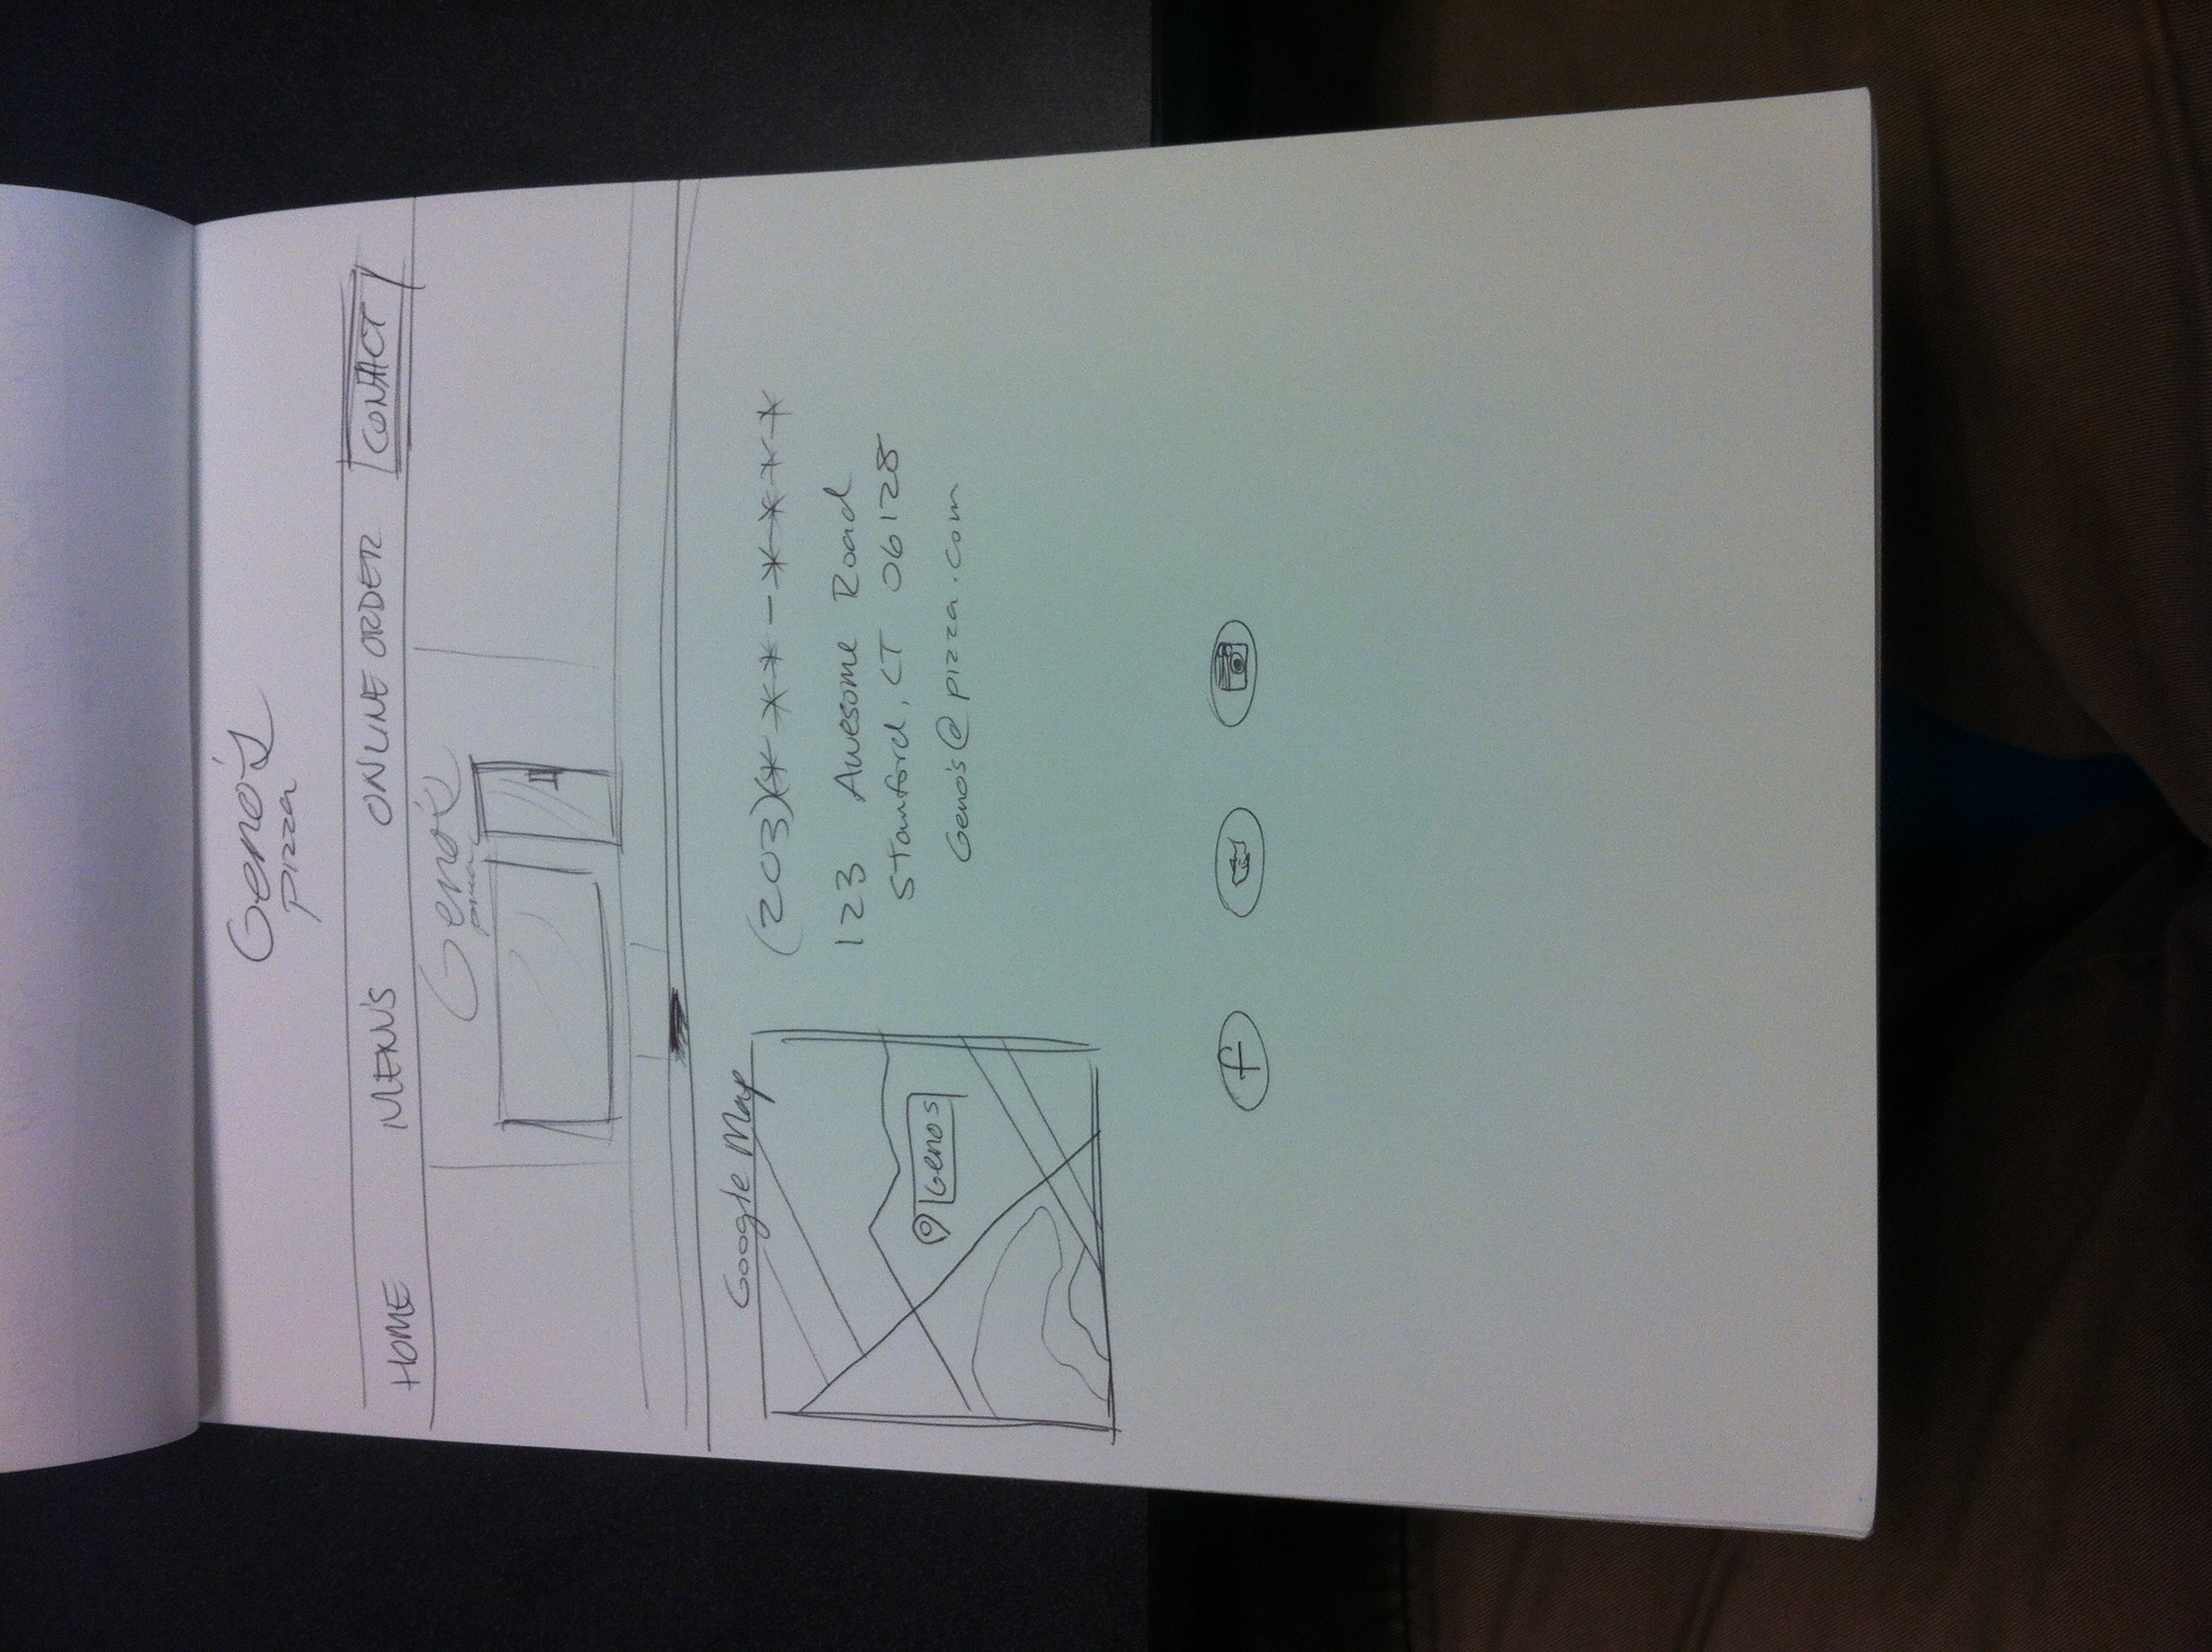 Geno's
pizza
HOME MENU'S ONLINE ORDER CONTACT
Geno's
pizza
Google Map
(203)(***-****
123 Awesome Road
Stamford, CT 06128
Geno's@pizza.com
Genos
f